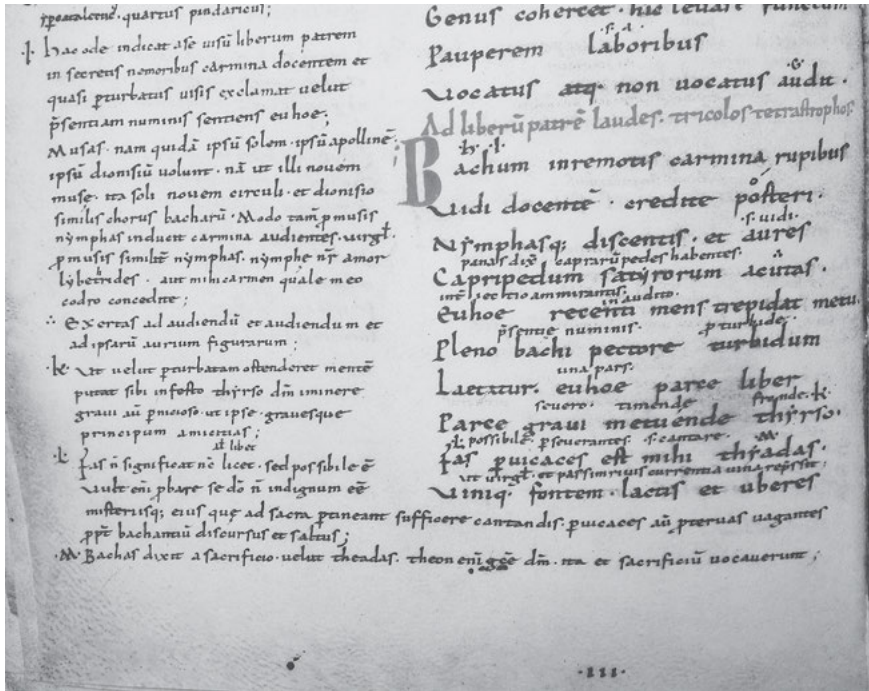 quartus pindaricus;
·I· Hac ode indicat a se uisū liberum patrem
in secretis nemoribus carmina docentem et
quasi pturbatus uisis exclamat uelut
p̄sentiam numinis sentiens euhoe;
Musas. nam quidā ipsū solem. ipsū apollinē;
ipsū dionisiū uolunt. nā ut illi nouem
muse. ita soli nouem circuli. et dionisio
similis chorus bacharū. Modo tam̄ p musis
nymphas inducit carmina audientes. uirgł.
p musis similit̄ nymphas. nymphe nr̄ amor
lybetrides. aut mihi carmen quale meo
codro concedite;
∴ Exertas ad audiendū et audiendum et
ad ipsarū aurium figurarum;
·k· Vt uelut pturbatam ostenderet mentē
putat sibi infesto thyrso dm̄ iminere
graui aū pnicioso. ut ipse. grauesque
principum amicitias;
libet
·L· Fas n̄ significat nc̄ licet. sed possibile ē
Vult eni pbare se do n̄ indignum eē
misteriisq; eius que ad sacra ptineant sufficere cantandis. puicaces aū pteruas uagantes
ppt̄ bachantiū discursus et saltus;
·M· Bachas dixit a sacrificio. uelut theadas. theon eni dm̄. ita et sacrificiū uocauerunt;
Genus cohercet. hic leuare functum
·s· a·
Pauperem laboribus
Vocatus atq. non uocatus audit.
Ad liberū patrē laudes. tricolos tetrastrophos.
Bachum in remotis carmina rupibus
Vidi docentē. credite posteri.
·s· uidi.
Nymphasq; discentis. et aures
caprarū pedes habentes.
Capripedum satyrorum acutas.
int̄iectio ammirantis. in audito.
Euhoe recenti mens trepidat metu.
p̄sentie numinis. pturbide.
Pleno bachi pectore turbidum
una pars.
Laetatur. euhoe parce liber
seuero. timende fronde. ·k·
Parce graui metuende thyrso.
·L· possibile. pseuerantes. ·s· cantare. ·M·
Fas puicaces est mihi thyadas.
ut uirgł. et passim riuis currentia uina repssit;
Viniq. fontem. lactis et uberes
·III·